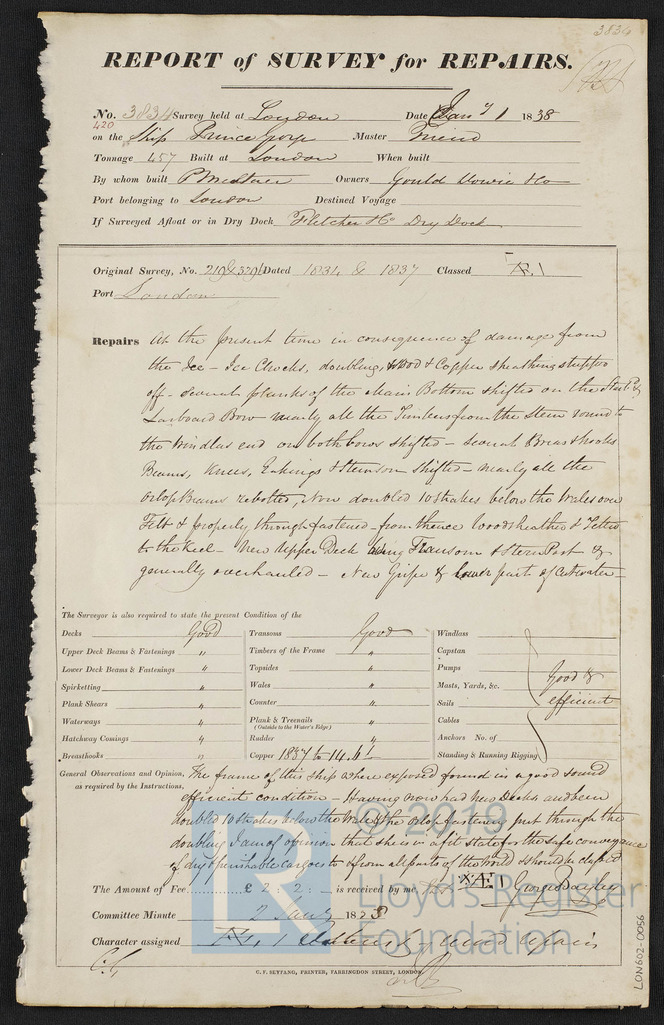 3834
REPORT of SURVEY for REPAIRS.
No. 3834 Survey held at London Date Jany 1 1838
420
on the Ship Prince George Master Friend
Tonnage 457 Built at London When built
By whom built Owners Gould Dowie & Co
Port belonging to London Destined Voyage
If Surveyed Afloat or in Dry Dock Fletcher & Co Dry Dock
Original Survey, No. 219 & 3291 Dated 1834 & 1837 Classed
Port London
Repairs At the present time in consequence of damage from
the Ice - Ice Chocks, doubling, Wood & Copper sheathing stripped
off - Several planks of the Main Bottom shifted on the Starbd &
Larboard Bow - nearly all the Timbers from the Stem round to
the Windlas end on both bows shifted - several Breasthooks
Beams, Knees, & Stemson shifted - nearly all the
Orlop Beams rebolted, Now doubled 10 strakes below the Wales over
Felt & properly through fastened - from thence Woodsheathed & Felted
to the Keel - New Upper Deck Transom & Stern Post &
generally overhauled - New Gripe & lower part of Cutwater -
The Surveyor is also required to state the present Condition of the
Decks Good Transoms Good Windlass
Upper Deck Beams & Fastenings " Timbers of the Frame " Capstan
Lower Deck Beams & Fastenings " Topsides " Pumps
Spirketting " Wales " Masts, Yards, &c. Good &
Plank Shears " Counter " Sails efficient
Waterways " Plank & Treenails " Cables
(Outside to the Water's Edge)
Hatchway Comings " Rudder " Anchors No. of
Breasthooks " Copper 1837 to 14.6 Standing & Running Rigging
General Observations and Opinion, The frame of this ship where exposed found in a good sound
as required by the Instructions. efficient condition. Having now had New Decks, and been
doubled 10 strakes below the Wales & the Orlop fastening put through the
doubling I am of opinion that she is in a fit state for the safe conveyance
of dry & perishable cargoes to & from all parts of the World & should be classed
The Amount of Fee £ 2 : 2 : - is received by me, George Bayley
Committee Minute 2 Jany 183
Character assigned
C. F. SEYFANG, PRINTER, FARRINGDON STREET, LONDON
© 2019
Lloyd's Register
Foundation
LR
LON602-0056